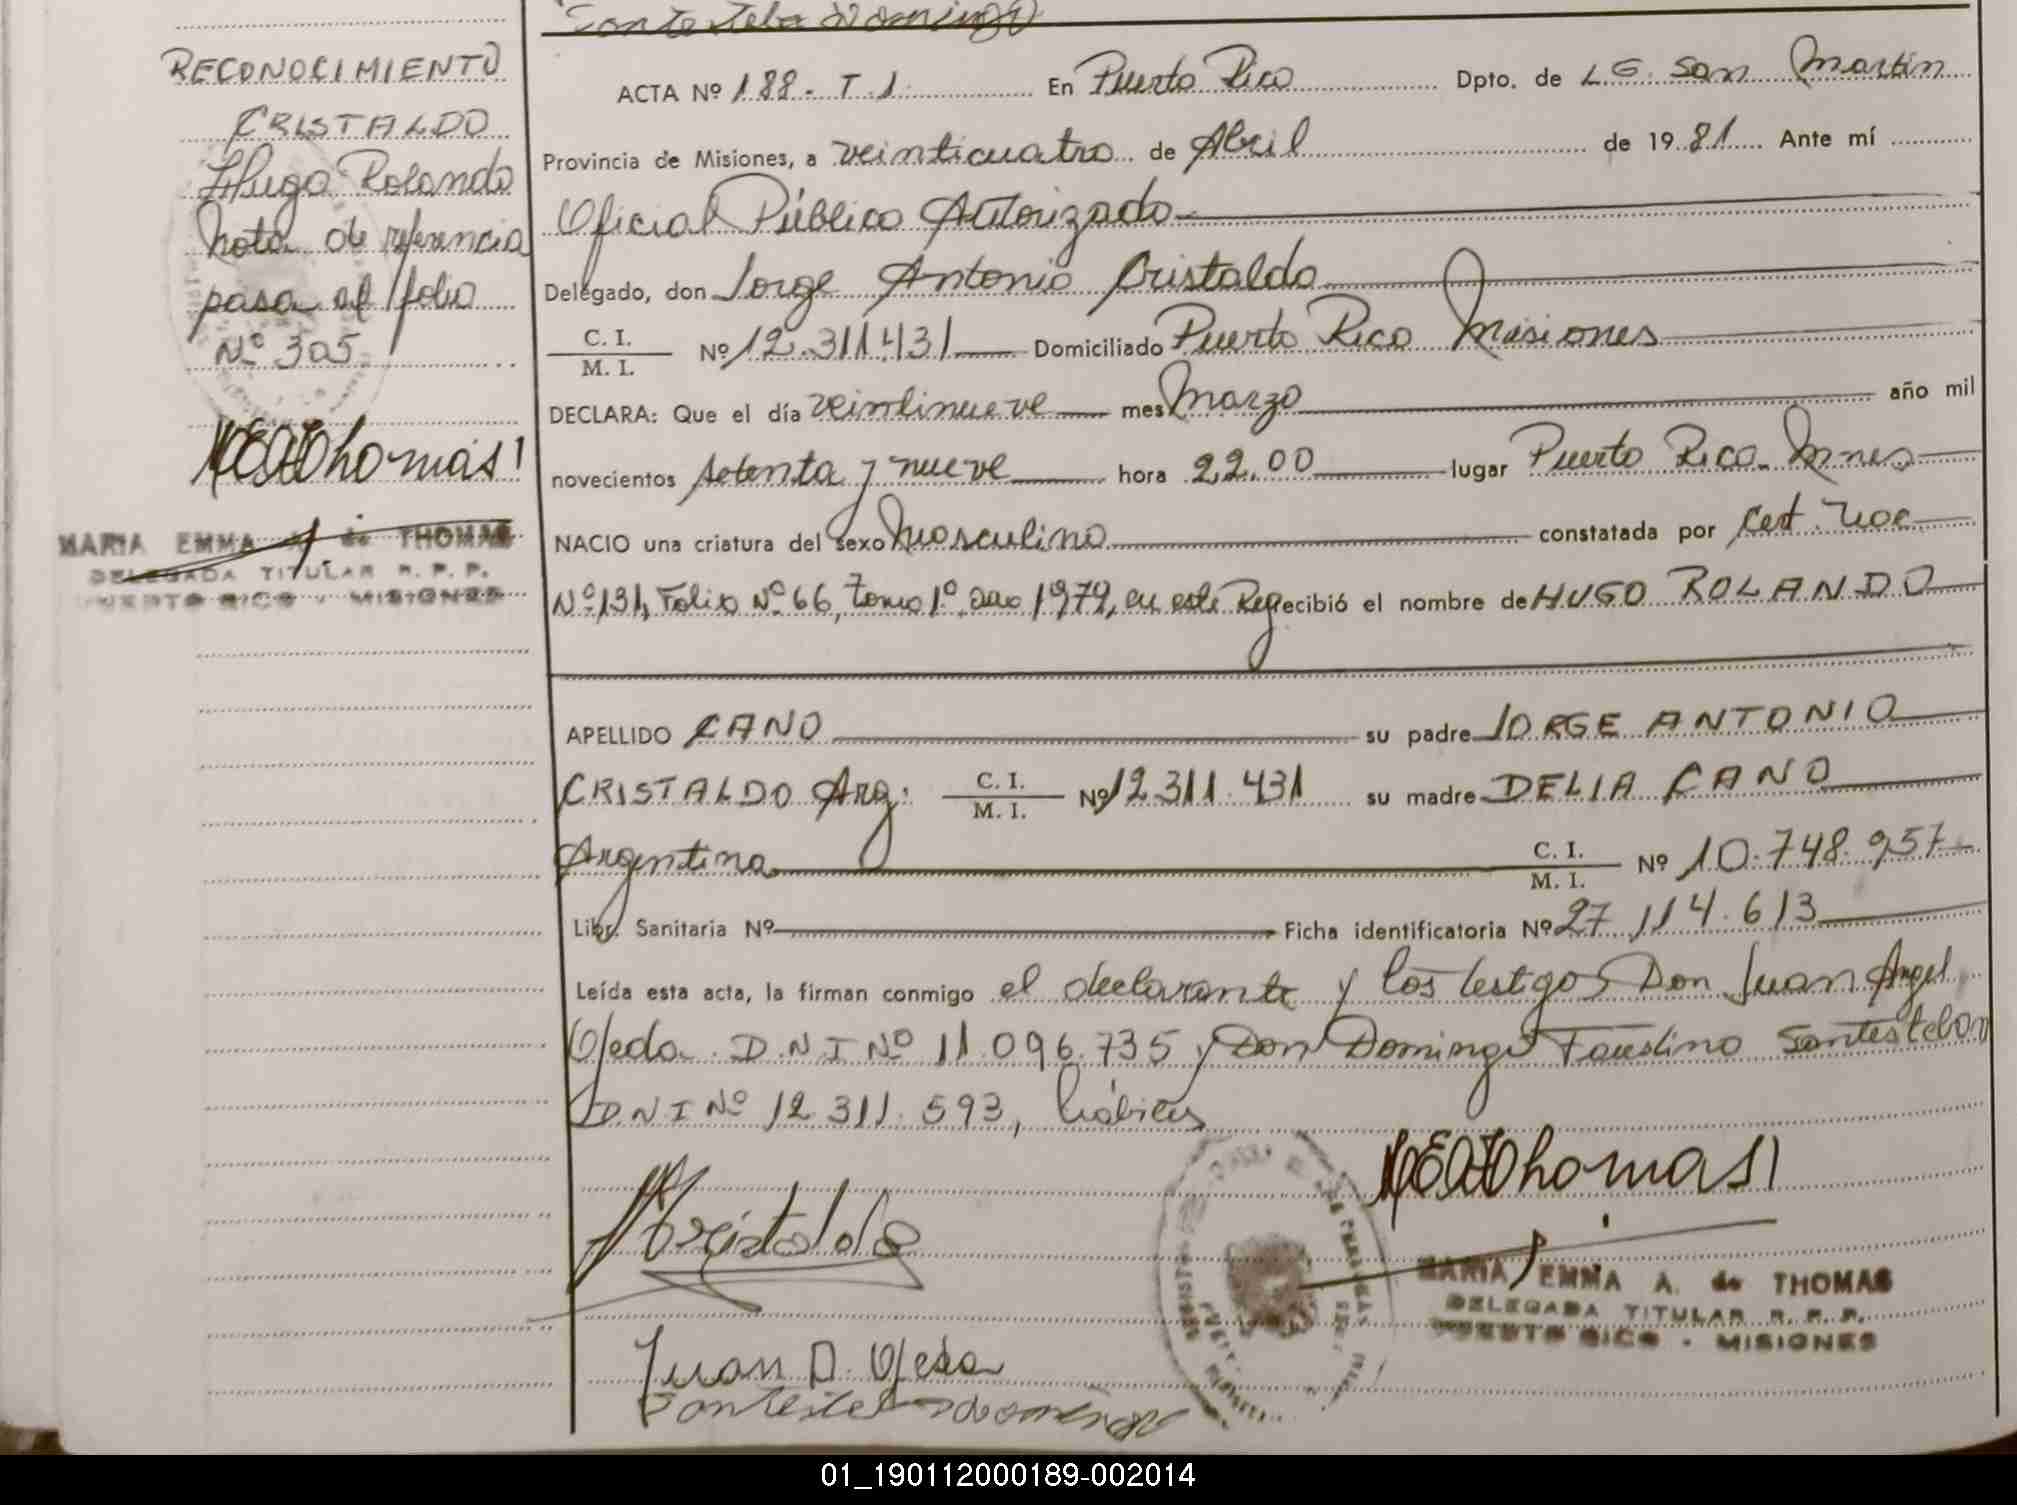 RECONOCIMIENTO
CRISTALDO
Hugo Rolando
Nota de referencia
pasa al folio
Nº 305
MEAThomas
MARIA EMMA A. de THOMAS
DELEGADA TITULAR R. P. P.
PUERTO RICO - MISIONES
ACTA Nº 188 - T. 1. En Puerto Rico Dpto. de L. G. San Martin
Provincia de Misiones, a veinticuatro de Abril de 1981 Ante mí
Oficial Público Autorizado
Delegado, don Jorge Antonio Cristaldo
C. I. / M. I. Nº 12.311.431 Domiciliado Puerto Rico Misiones
DECLARA: Que el día veintinueve mes Marzo año mil
novecientos setenta y nueve hora 22,00 lugar Puerto Rico - Mnes
NACIO una criatura del sexo Masculino constatada por Cert. Nac
Nº 131, Folio Nº 66, Tomo 1º, año 1979, en este Reg recibió el nombre de HUGO ROLANDO
APELLIDO CANO su padre JORGE ANTONIO
CRISTALDO Arg. C. I. / M. I. Nº 12.311.431 su madre DELIA CANO
Argentina C. I. / M. I. Nº 10.748.957
Libr. Sanitaria Nº Ficha identificatoria Nº 27.114.613
Leída esta acta, la firman conmigo el declarante y los testigos Don Juan Angel
Ojeda D.N.I Nº 11.096.735 y Don Domingo Faustino Santesteban
D.N.I Nº 12.311.593, hábiles
Cristaldo
MEAThomas
MARIA EMMA A. de THOMAS
DELEGADA TITULAR R. P. P.
PUERTO RICO - MISIONES
Juan A. Ojeda
01_190112000189-002014